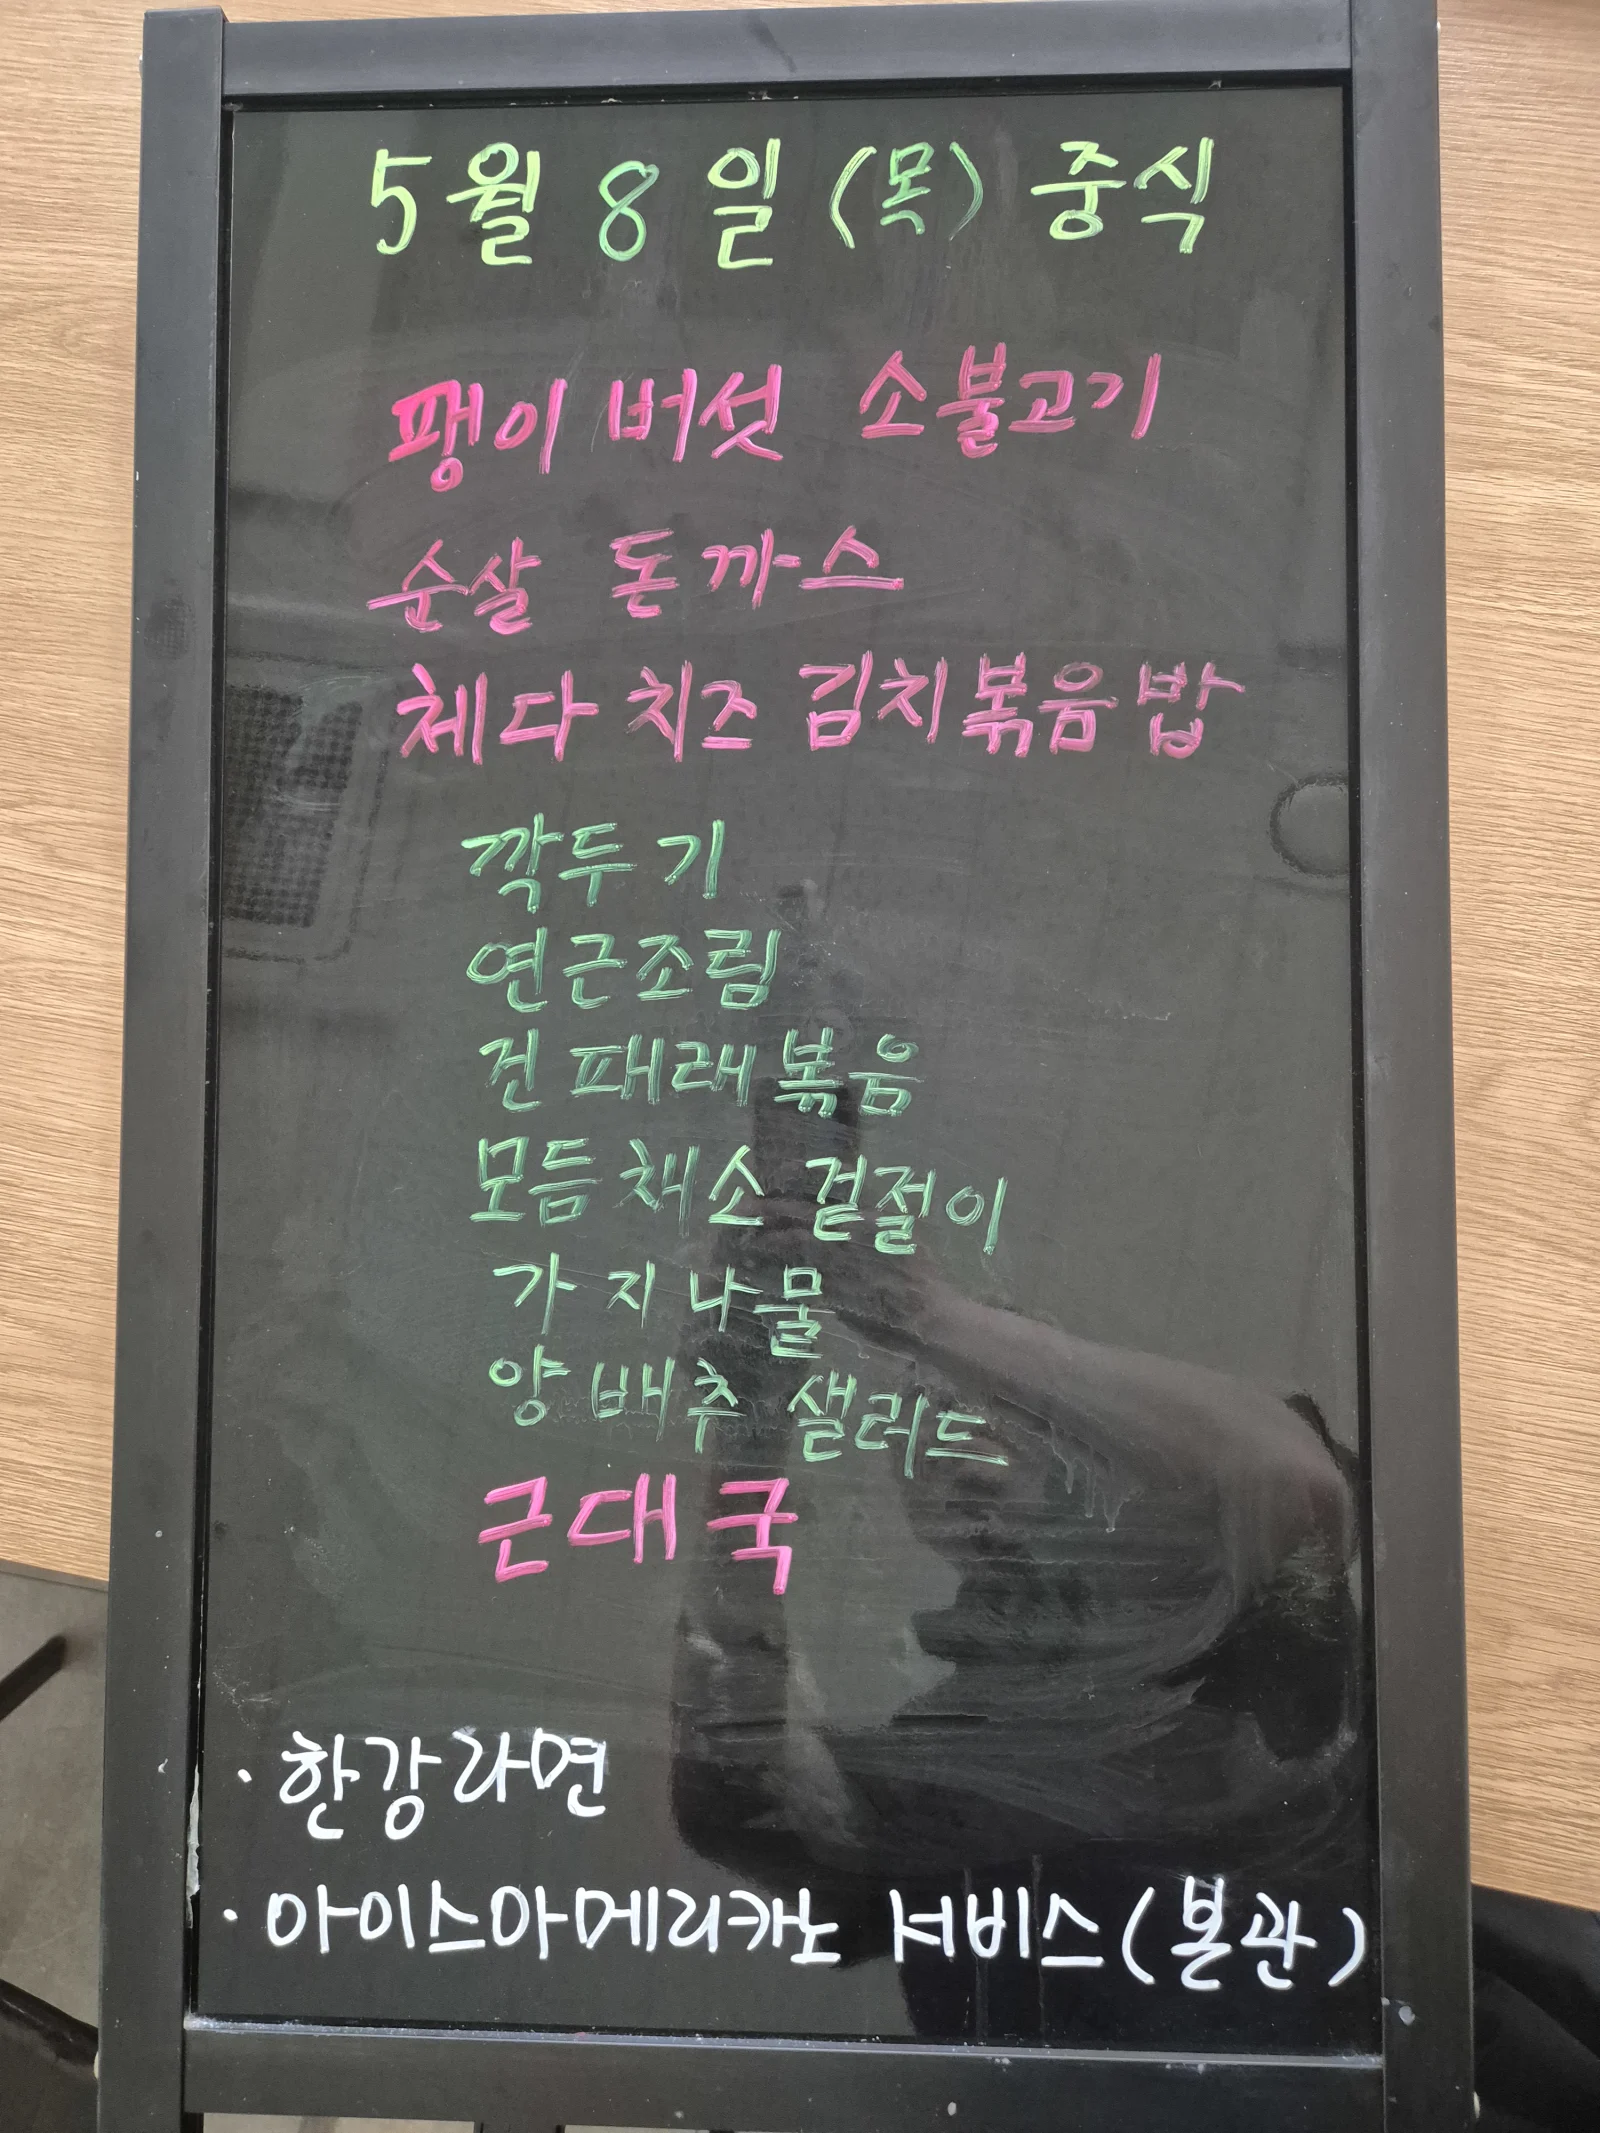 5월 8일 (목) 중식
팽이버섯 소불고기
순살 돈까스
체다치즈 김치볶음밥
깍두기
연근조림
건파래볶음
모듬채소 겉절이
가지나물
양배추 샐러드
근대국
· 한강라면
· 아이스아메리카노 서비스(본관)